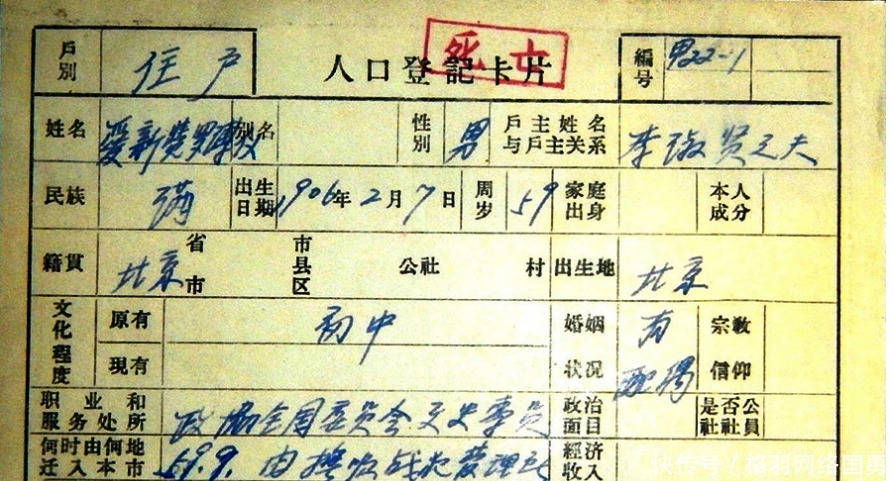 死亡
戶別 住户 人口登記卡片 編号 男22-1
姓名 爱新觉罗溥仪 别名 性别 男 戶主姓名与戶主关系 李淑贤之夫
民族 满 出生日期 1906年2月7日 周岁 59 家庭出身 本人成分
籍貫 北京 省市 市县区 公社 村 出生地 北京
文化程度 原有 初中 婚姻状况 有配偶 宗教信仰
現有
职业和服务处所 政协全国委员会文史专员 政治面目 是否公社社员
何时由何地迁入本市 59.9. 由抚顺战犯管理所 經济收入
快传号